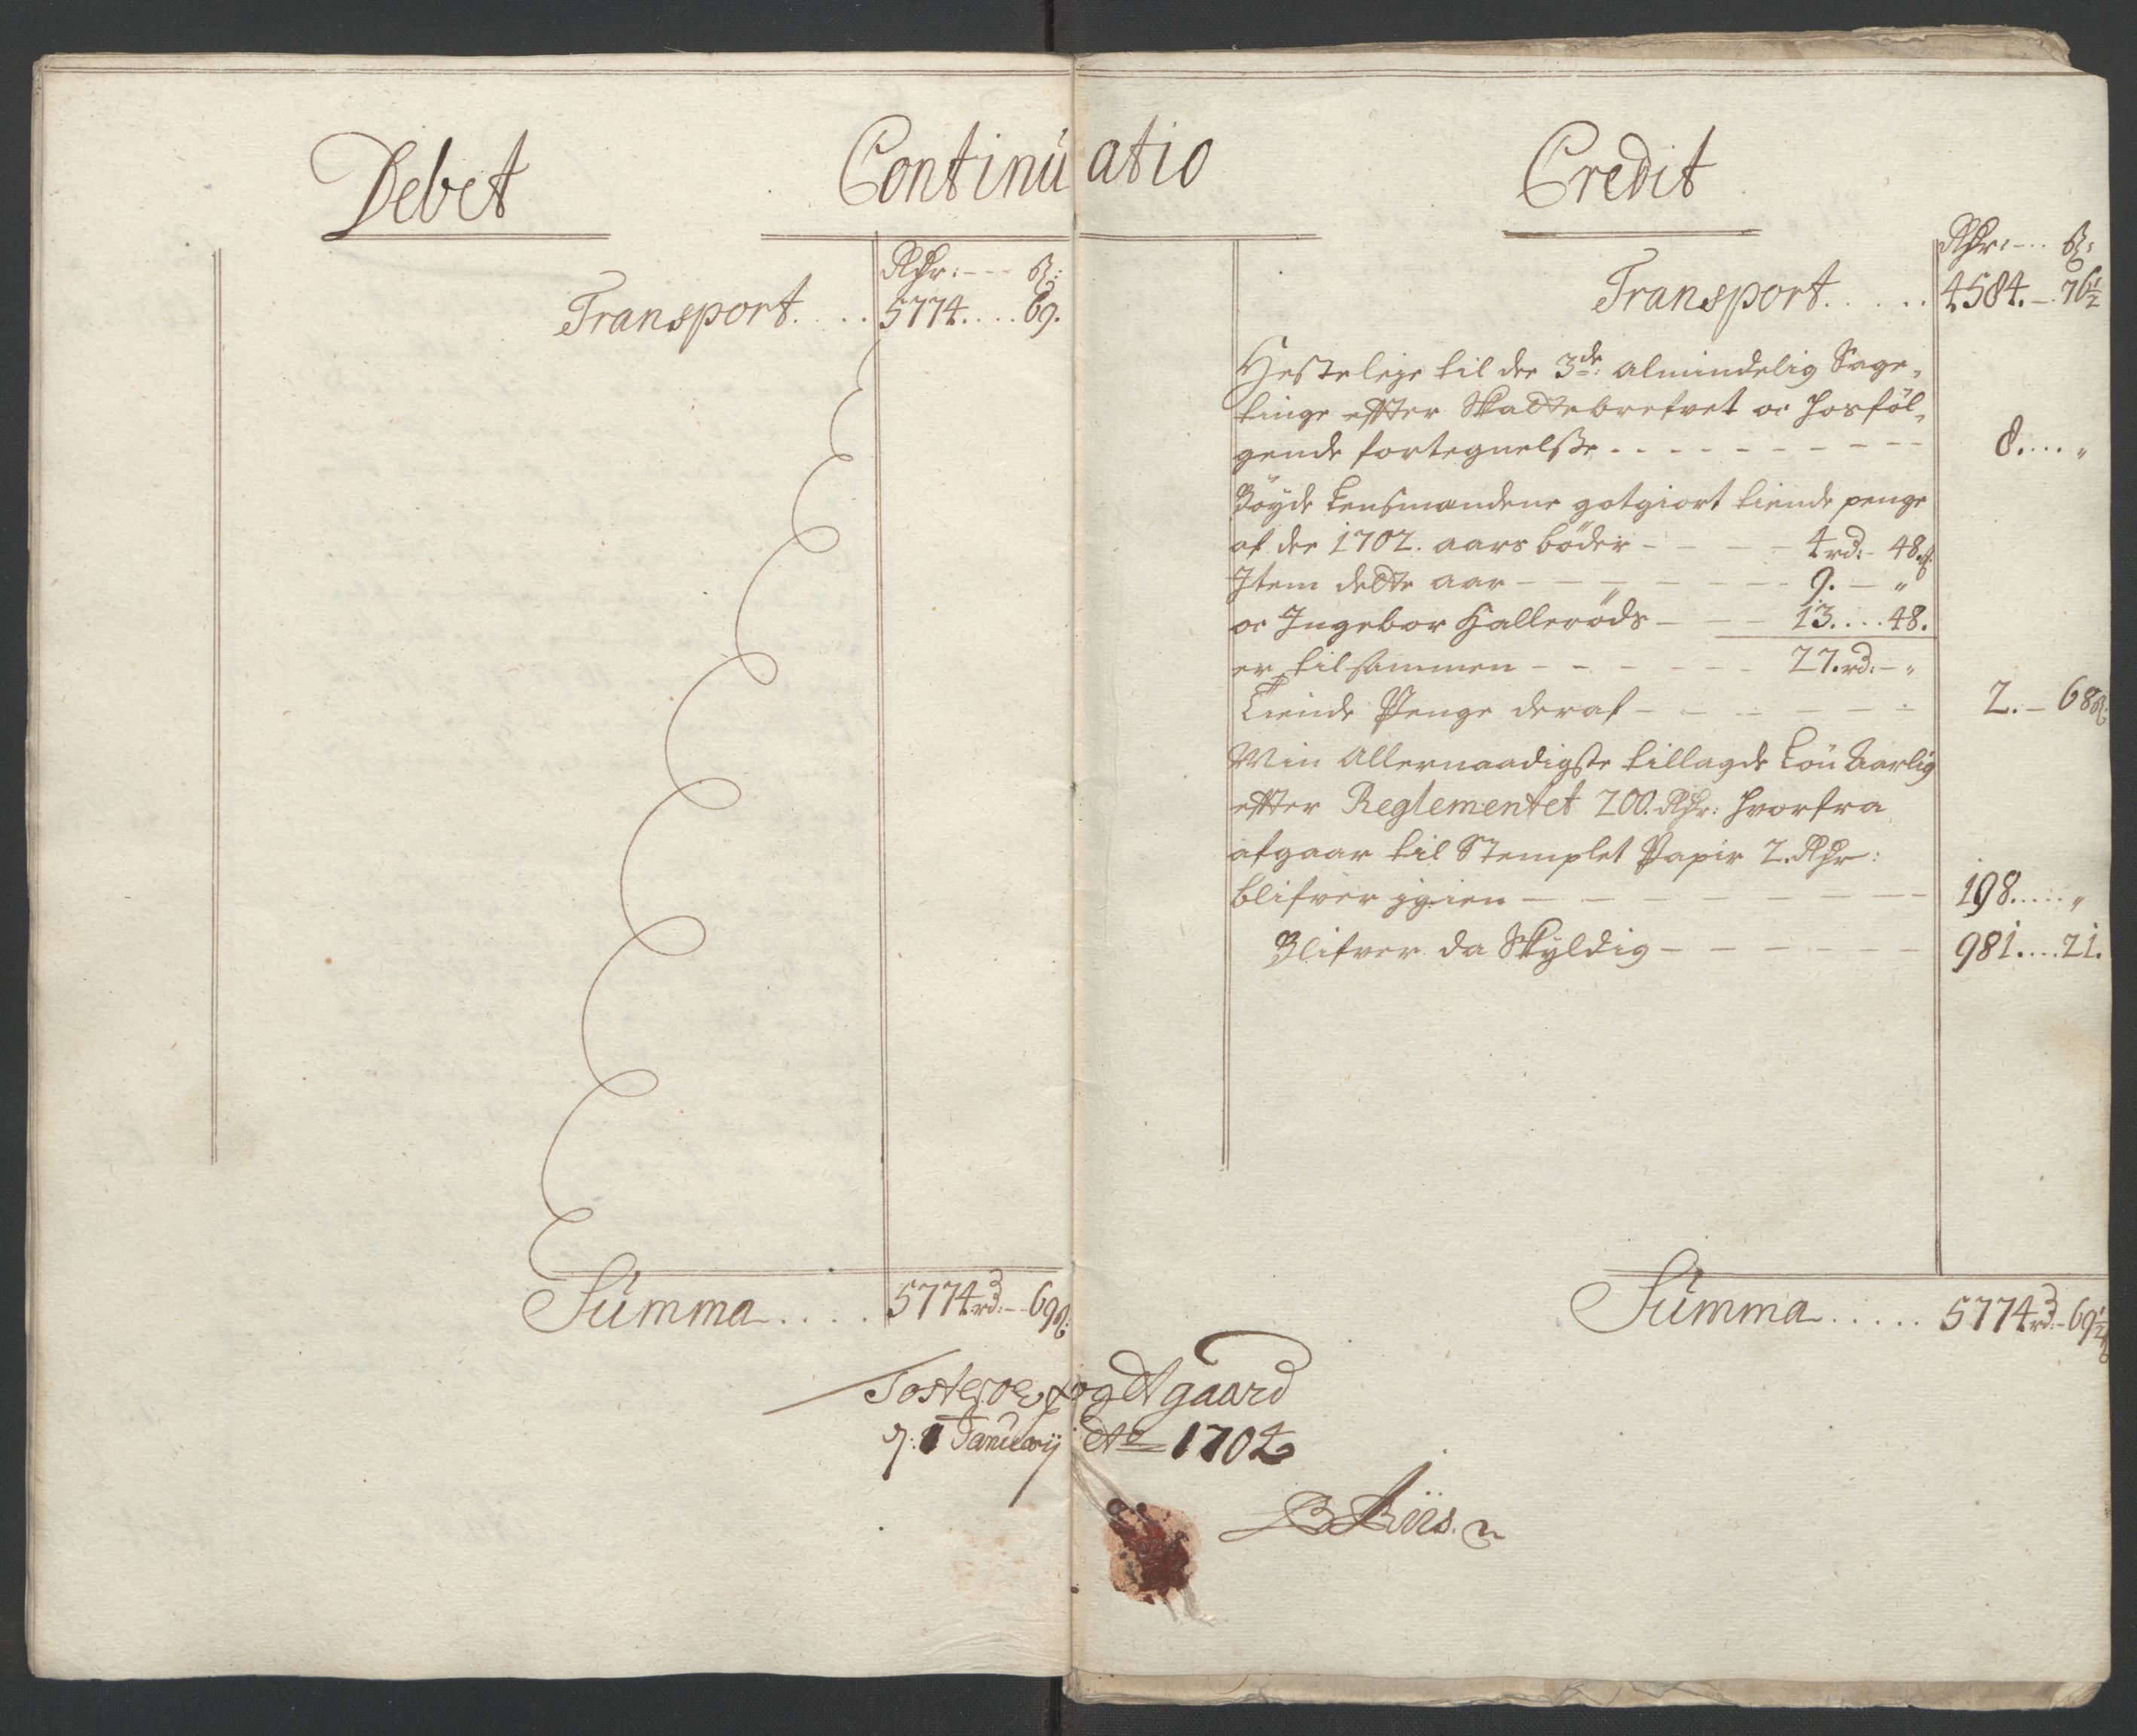 Debet
Continuatio
Credit
Rdr: ß:
Transport 5774 69.
Summa 5774 rd: 69 ß:
Rdr: ß:
Transport 4584. 76½
Hesteleje til de 3de: almindelig Sage-
tinge effter Skattebrefvet oc hosföl-
gende fortegnelsse 8. "
Böyde Lensmandene gotgiort tiende penge
af de 1702. aars böder 4 rd: 48 ß:
Item dette aar 9. "
oc Ingebor Hallerøds 13. 48.
er tilsammen 27. rd: "
Tiende Penge deraf 2. 68 ß:
Min Allernaadigste tillagde Lön Aarlig
effter Reglementet 200. Rdr: hvorfra
afgaar til Stemplet Papir 2. Rdr:
blifver igien 198. "
Blifver da Skyldig 981. 21.
Summa 5774 rd: 69½ ß
Fogdtgaard
d: 1 January Ao 1704